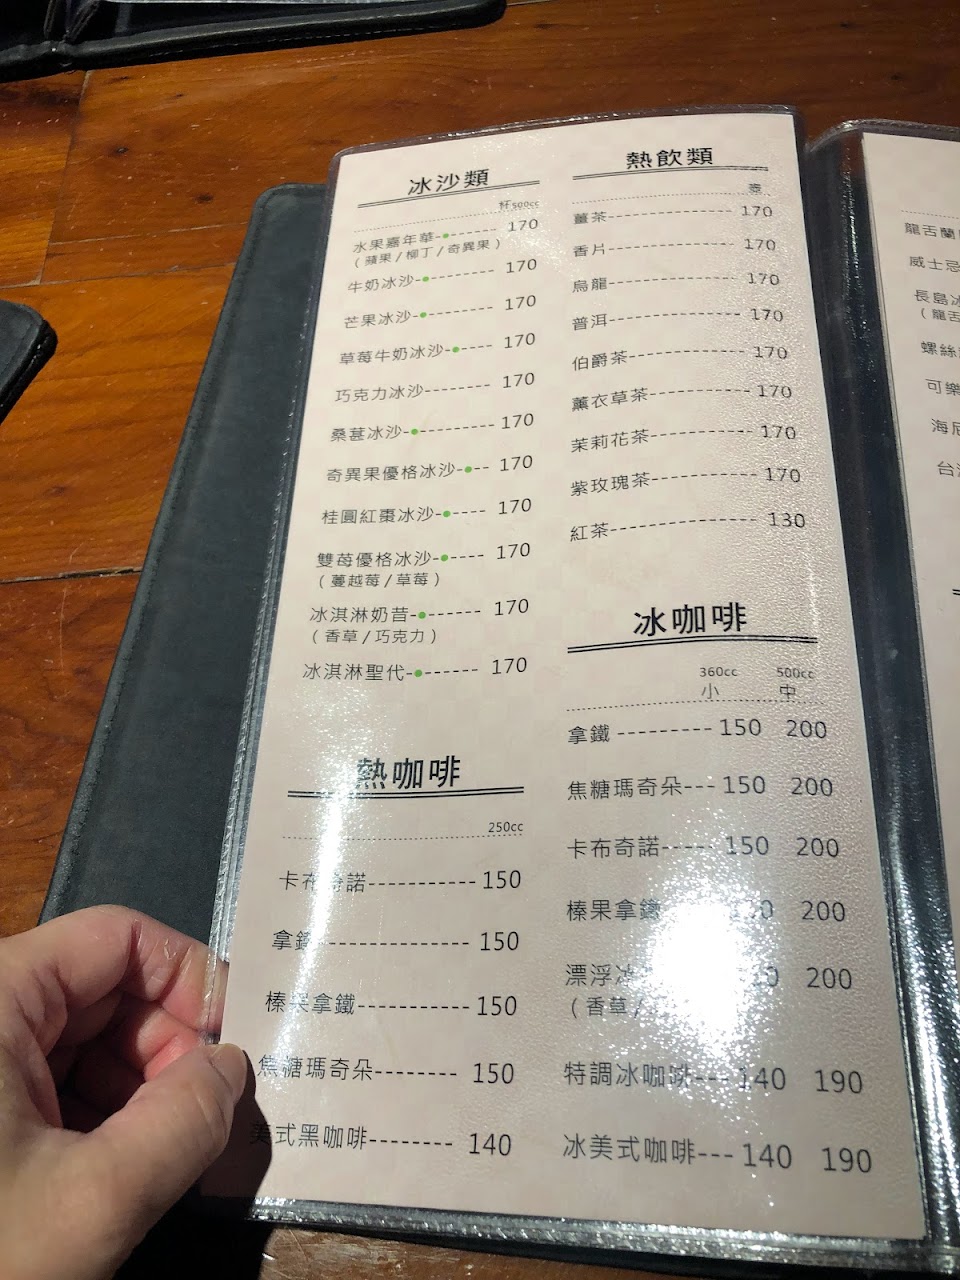 冰沙類
杯500cc
水果嘉年華 170
(蘋果/柳丁/奇異果)
牛奶冰沙 170
芒果冰沙 170
草莓牛奶冰沙 170
巧克力冰沙 170
桑葚冰沙 170
奇異果優格冰沙 170
桂圓紅棗冰沙 170
雙莓優格冰沙 170
(蔓越莓/草莓)
冰淇淋奶昔 170
(香草/巧克力)
冰淇淋聖代 170
熱咖啡
250cc
卡布奇諾 150
拿鐵 150
榛果拿鐵 150
焦糖瑪奇朵 150
美式黑咖啡 140
熱飲類
壺
薑茶 170
香片 170
烏龍 170
普洱 170
伯爵茶 170
薰衣草茶 170
茉莉花茶 170
紫玫瑰茶 170
紅茶 130
冰咖啡
360cc 500cc
小 中
拿鐵 150 200
焦糖瑪奇朵 150 200
卡布奇諾 150 200
榛果拿鐵 200
漂浮冰 200
(香草/
特調冰咖啡 140 190
冰美式咖啡 140 190
龍舌蘭
威士忌
長島冰
(龍舌
螺絲
可樂
海尼
台灣